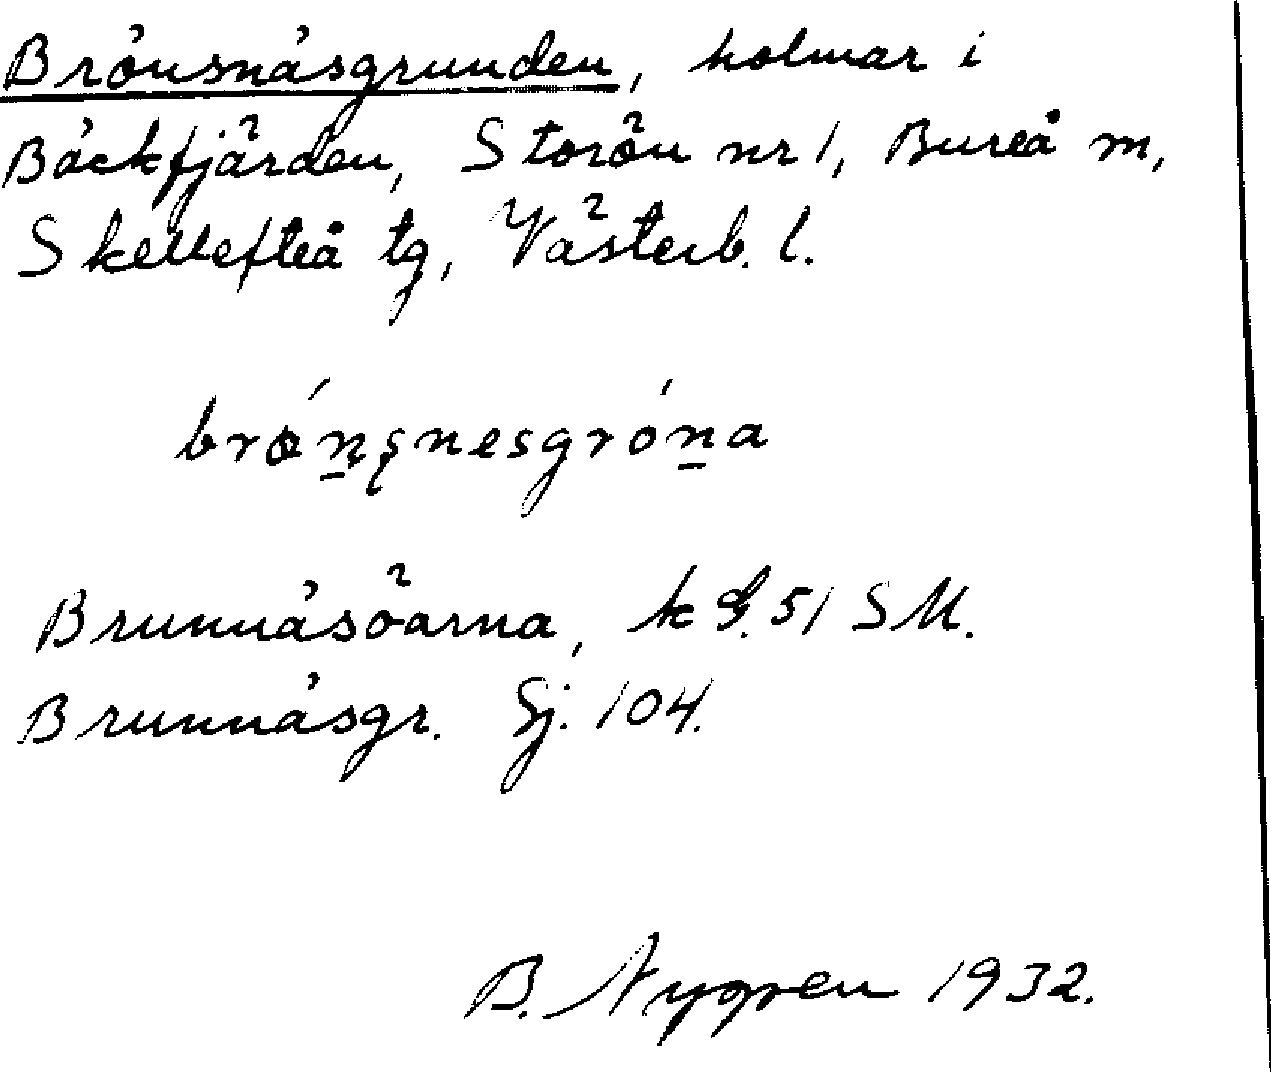 Brönsnäsgrunden, holmar i
Bäckfjärden, Storön nr 1, Bureå m,
Skellefteå tg, Västerb. l.
brǿn̠s̨nesgrón̠a
Brunnäsöarna, k G. 51 SM.
Brunnäsgr. Sj. 104.
B. Nygren 1932.